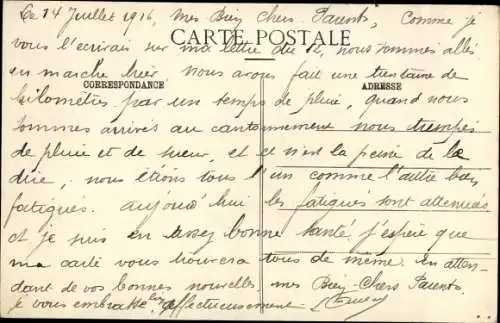 Ce 14 Juillet 1916, Mes Bien Chers Parents, Comme je
CARTE POSTALE
vous l'écrivais sur ma lettre du 12, nous sommes allés
en marche hier. nous avons fait une trentaine de
CORRESPONDANCE
ADRESSE
kilomètres par un temps de pluie, quand nous
sommes arrivés au cantonnement nous trempés
de pluie et de sueur, et ce n'est la peine de le
dire, nous étions tous l'un comme l'autre bien
fatigués. aujourd'hui les fatigues sont atténuées
et je suis en assez bonne santé, j'espère que
ma carte vous trouvera tous de même. en atten-
dant de vos bonnes nouvelles, mes Bien Chers Parents
je vous embrasse bien affectueusement